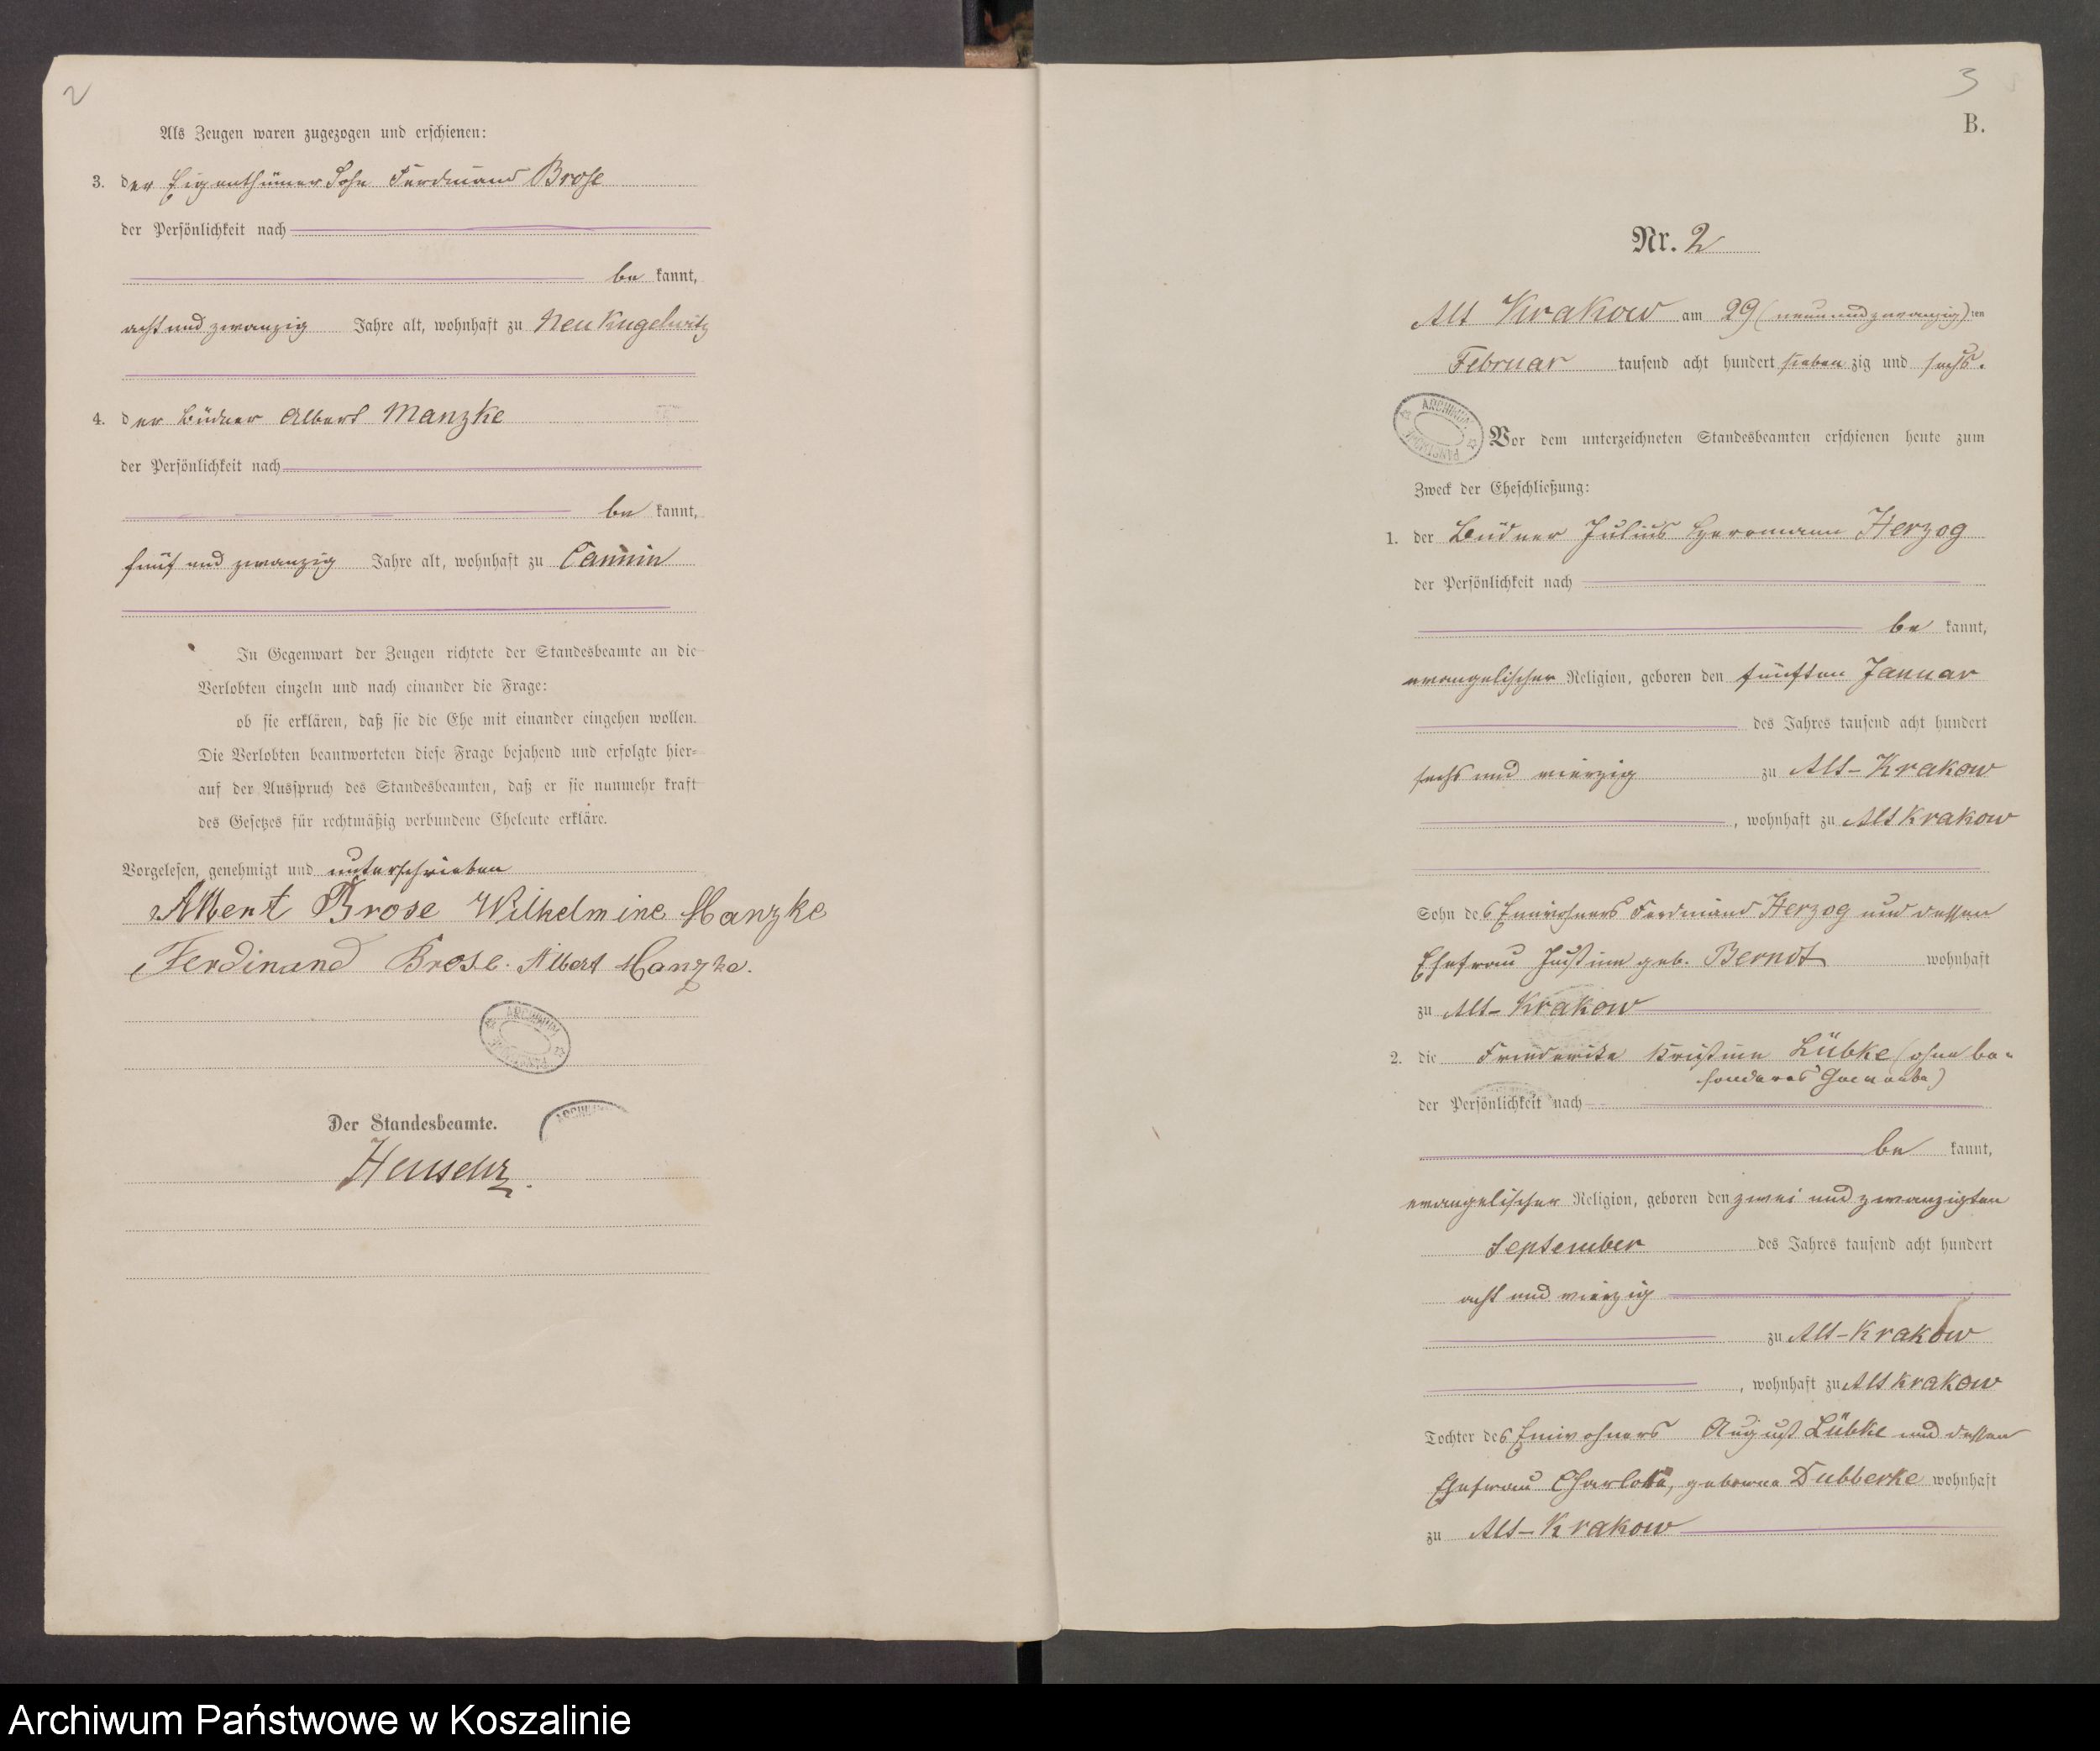 2
Als Zeugen waren zugezogen und erschienen:
3. der Eigenthümer Sohn Ferdinand Brose
der Persönlichkeit nach
be kannt,
acht und zwanzig Jahre alt, wohnhaft zu Neu Kugelwitz
4. der Büdner Albert Manzke
der Persönlichkeit nach
be kannt,
fünf und zwanzig Jahre alt, wohnhaft zu Cannin
In Gegenwart der Zeugen richtete der Standesbeamte an die
Verlobten einzeln und nach einander die Frage:
ob sie erklären, daß sie die Ehe mit einander eingehen wollen.
Die Verlobten beantworteten diese Frage bejahend und erfolgte hier=
auf der Ausspruch des Standesbeamten, daß er sie nunmehr kraft
des Gesetzes für rechtmäßig verbundene Eheleute erkläre.
Vorgelesen, genehmigt und unterschrieben
Albert Brose Wilhelmine Manzke
Ferdinand Brose. Albert Manzke.
ARCHIWUM
Der Standesbeamte.
ARCHIWUM
3
B.
Nr. 2
Alt Krakow am 29 (neunundzwanzig)ten
Februar tausend acht hundert sieben zig und sechs.
ARCHIWUM PAŃSTWOWE
Vor dem unterzeichneten Standesbeamten erschienen heute zum
Zweck der Eheschließung:
1. der Büdner Julius Herrmann Herzog
der Persönlichkeit nach
be kannt,
evangelischer Religion, geboren den fünften Januar
des Jahres tausend acht hundert
sechs und vierzig zu Alt-Krakow
, wohnhaft zu Alt Krakow
Sohn des Einwohners Ferdinand Herzog und dessen
Ehefrau Justine geb. Berndt wohnhaft
zu Alt-Krakow
2. die Friederike Kristine Lübke (ohne be-
sonderes Gewerbe)
der Persönlichkeit nach
be kannt,
evangelischer Religion, geboren den zwei und zwanzigsten
September des Jahres tausend acht hundert
acht und vierzig
zu Alt-Krakow
, wohnhaft zu Alt Krakow
Tochter des Einwohners August Lübke und dessen
Ehefrau Charlotte, geborne Dubberke wohnhaft
zu Alt-Krakow
Archiwum Państwowe w Koszalinie